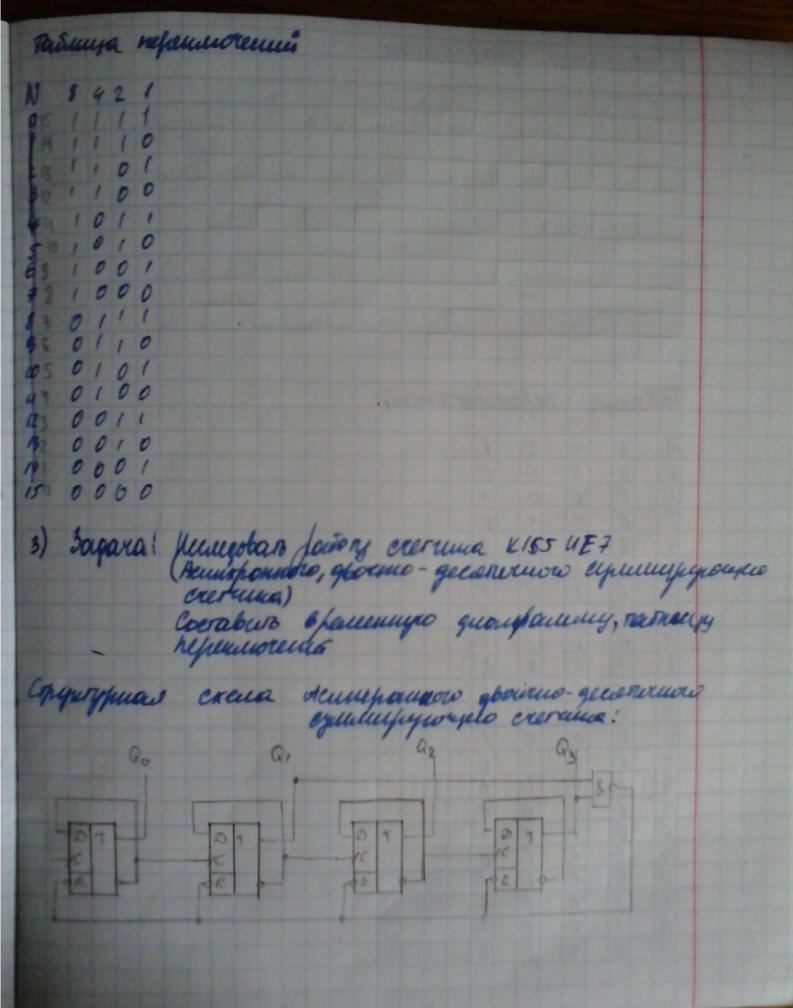 Таблица переключений
N 8 4 2 1
1 1 1 1
1 1 1 0
1 1 0 1
1 1 0 0
1 0 1 1
1 0 1 0
1 0 0 1
1 0 0 0
0 1 1 1
0 1 1 0
0 1 0 1
0 1 0 0
0 0 1 1
0 0 1 0
0 0 0 1
15 0 0 0 0
3) Задача: Исследовать работу счетчика К155 ИЕ7
(Асинхронного, двоично-десятичного суммирующего
счетчика)
Составить временную диаграмму, таблицу
переключений
Структурная схема Асинхронного двоично-десятичного
суммирующего счетчика:
Q0 Q1 Q2 Q3
&
D T D T D T D T
C C C C
R R R R